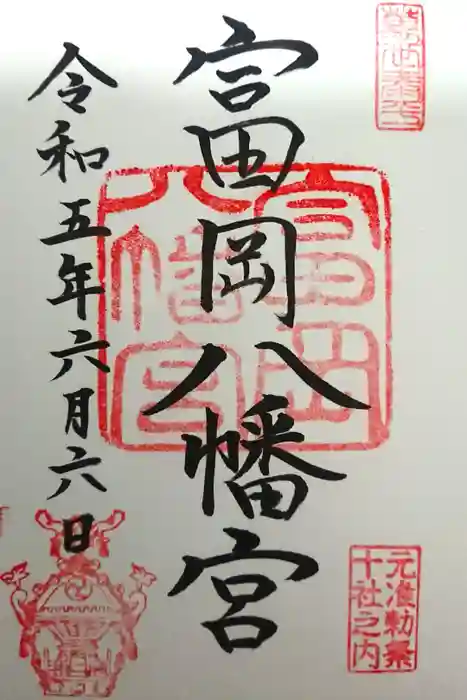 富岡八幡宮
令和五年六月六日
富岡八幡宮
元准勅祭
十社之内